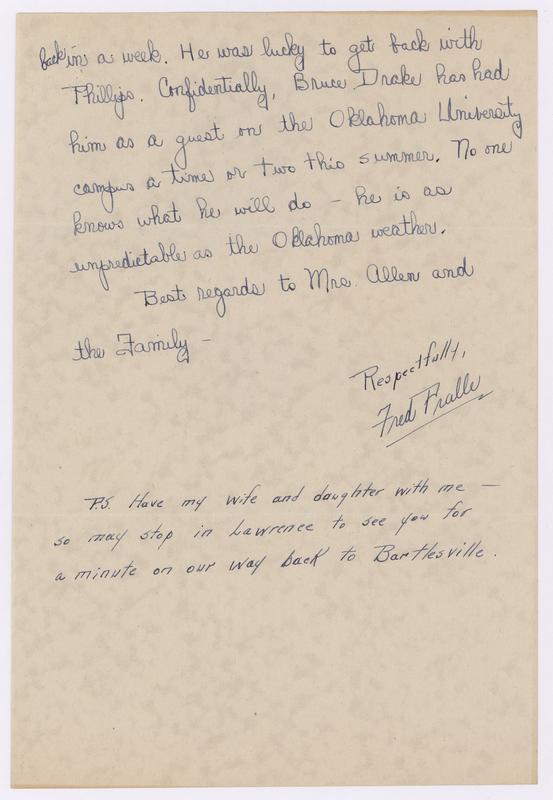 back in a week. He was lucky to get back with
Phillips. Confidentially, Bruce Drake has had
him as a guest on the Oklahoma University
campus a time or two this summer. No one
knows what he will do – he is as
unpredictable as the Oklahoma weather.
Best regards to Mrs. Allen and
the Family –
Respectfully,
Fred Pralle
P.S. Have my wife and daughter with me –
so may stop in Lawrence to see you for
a minute on our way back to Bartlesville.